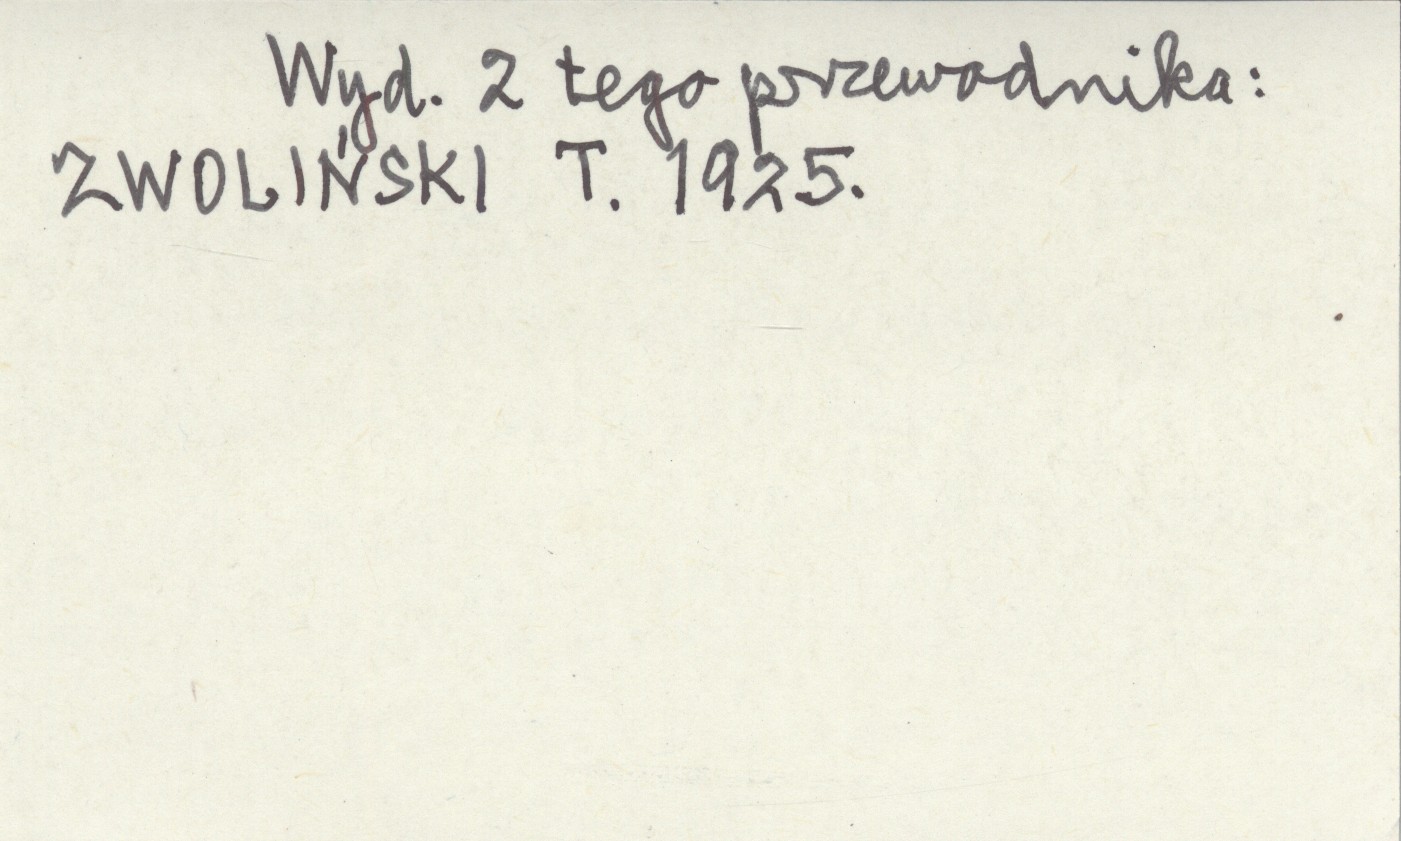 Wyd. 2 tego przewodnika:
ZWOLIŃSKI T. 1925.